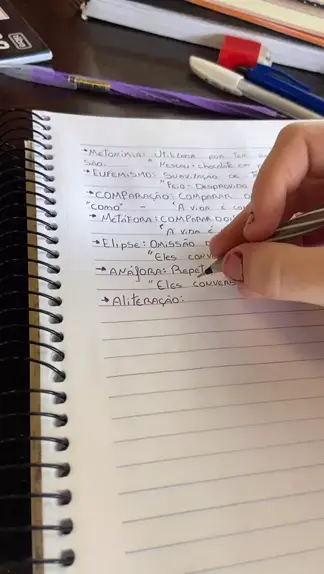 → Metonímia: Utilizar por ter
são. "Nescau = chocolate em
→ Eufemismo: Suavização de
"Feio = Desprovida
→ Comparação: Comparar
"como" - "A vida é com
→ Metáfora: Comparar dois
"A vida é
→ Elipse: Omissão
"Eles conv
→ Anáfora: Repet
"Eles convers
→ Aliteração: